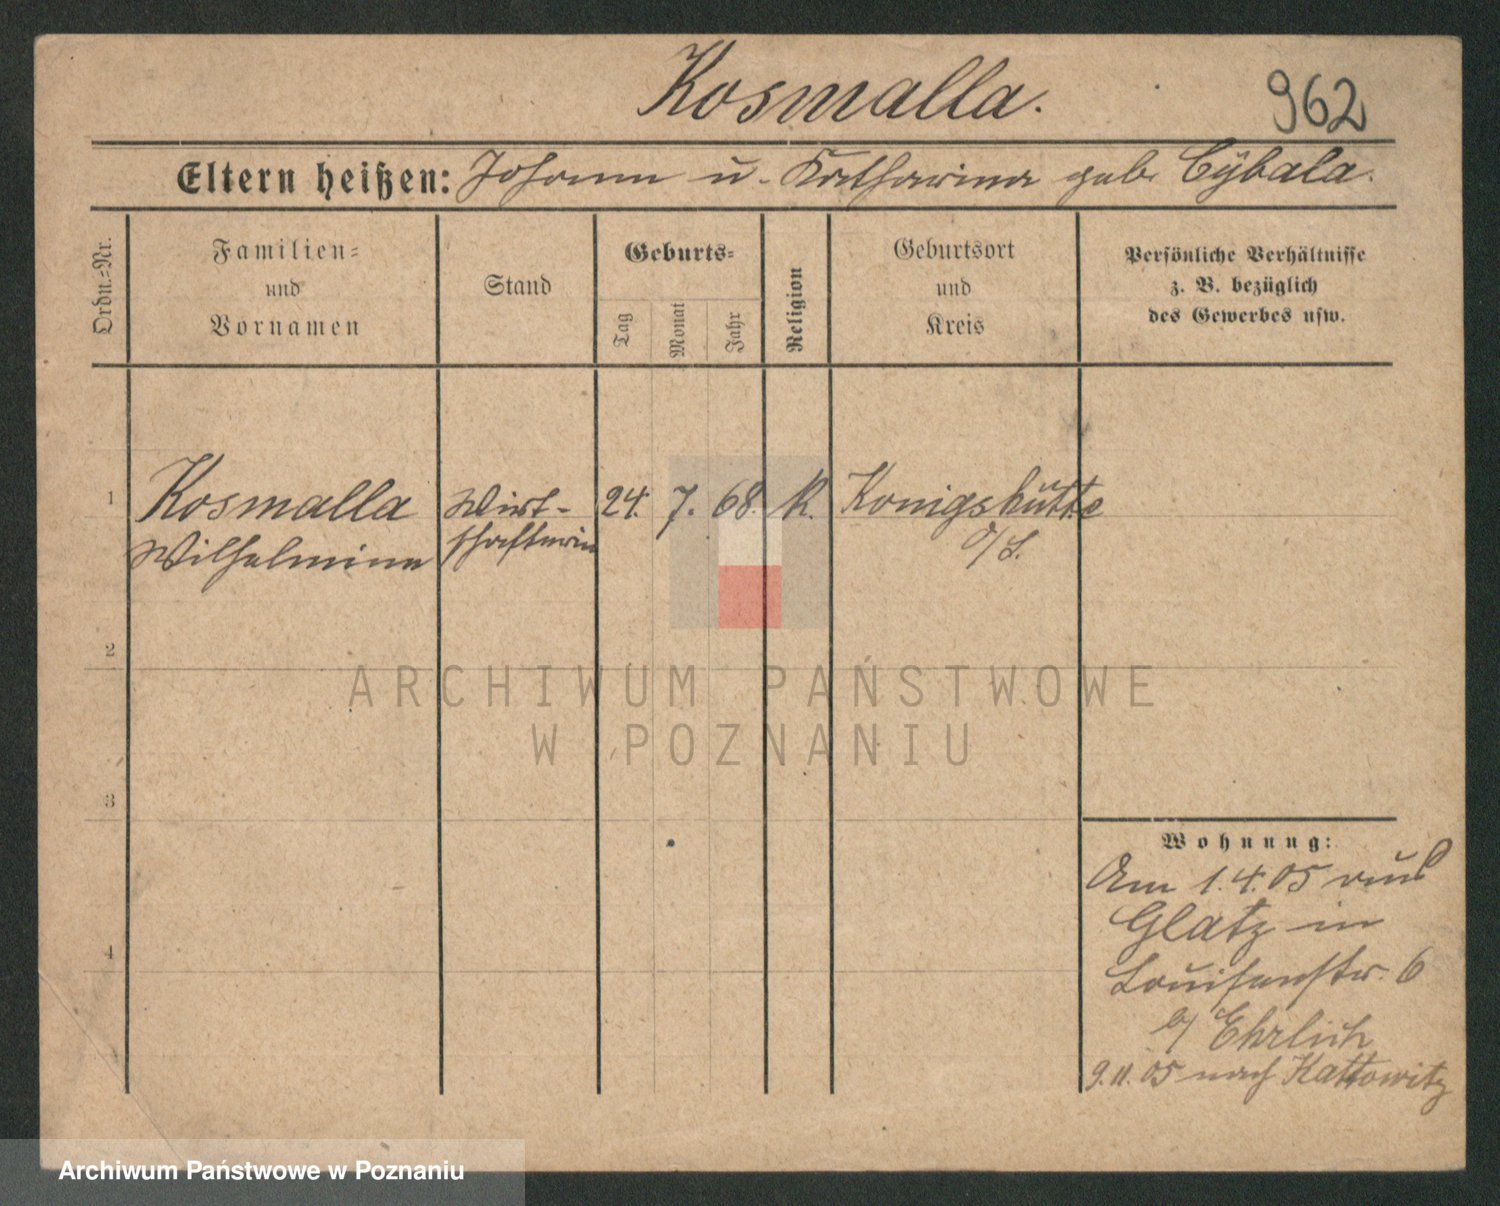 Kosmalla.
962
Eltern heißen: Johann u. Katharina geb. Cÿbala.
Ordn.-Nr.
Familien-
und
Vornamen
Stand
Geburts-
Tag
Monat
Jahr
Religion
Geburtsort
und
Kreis
Persönliche Verhältnisse
z. B. bezüglich
des Gewerbes usw.
1
Kosmalla
Wilhelmine
Wirt-
schafterin
24. 7. 68. K.
Königshütte
O/S.
2
ARCHIWUM PAŃSTWOWE
W POZNANIU
3
Wohnung:
Am 1.4.05 aus
Glatz in
Louisenstr. 6
b/ Ehrlich
9.11.05 nach Kattowitz
4
Archiwum Państwowe w Poznaniu